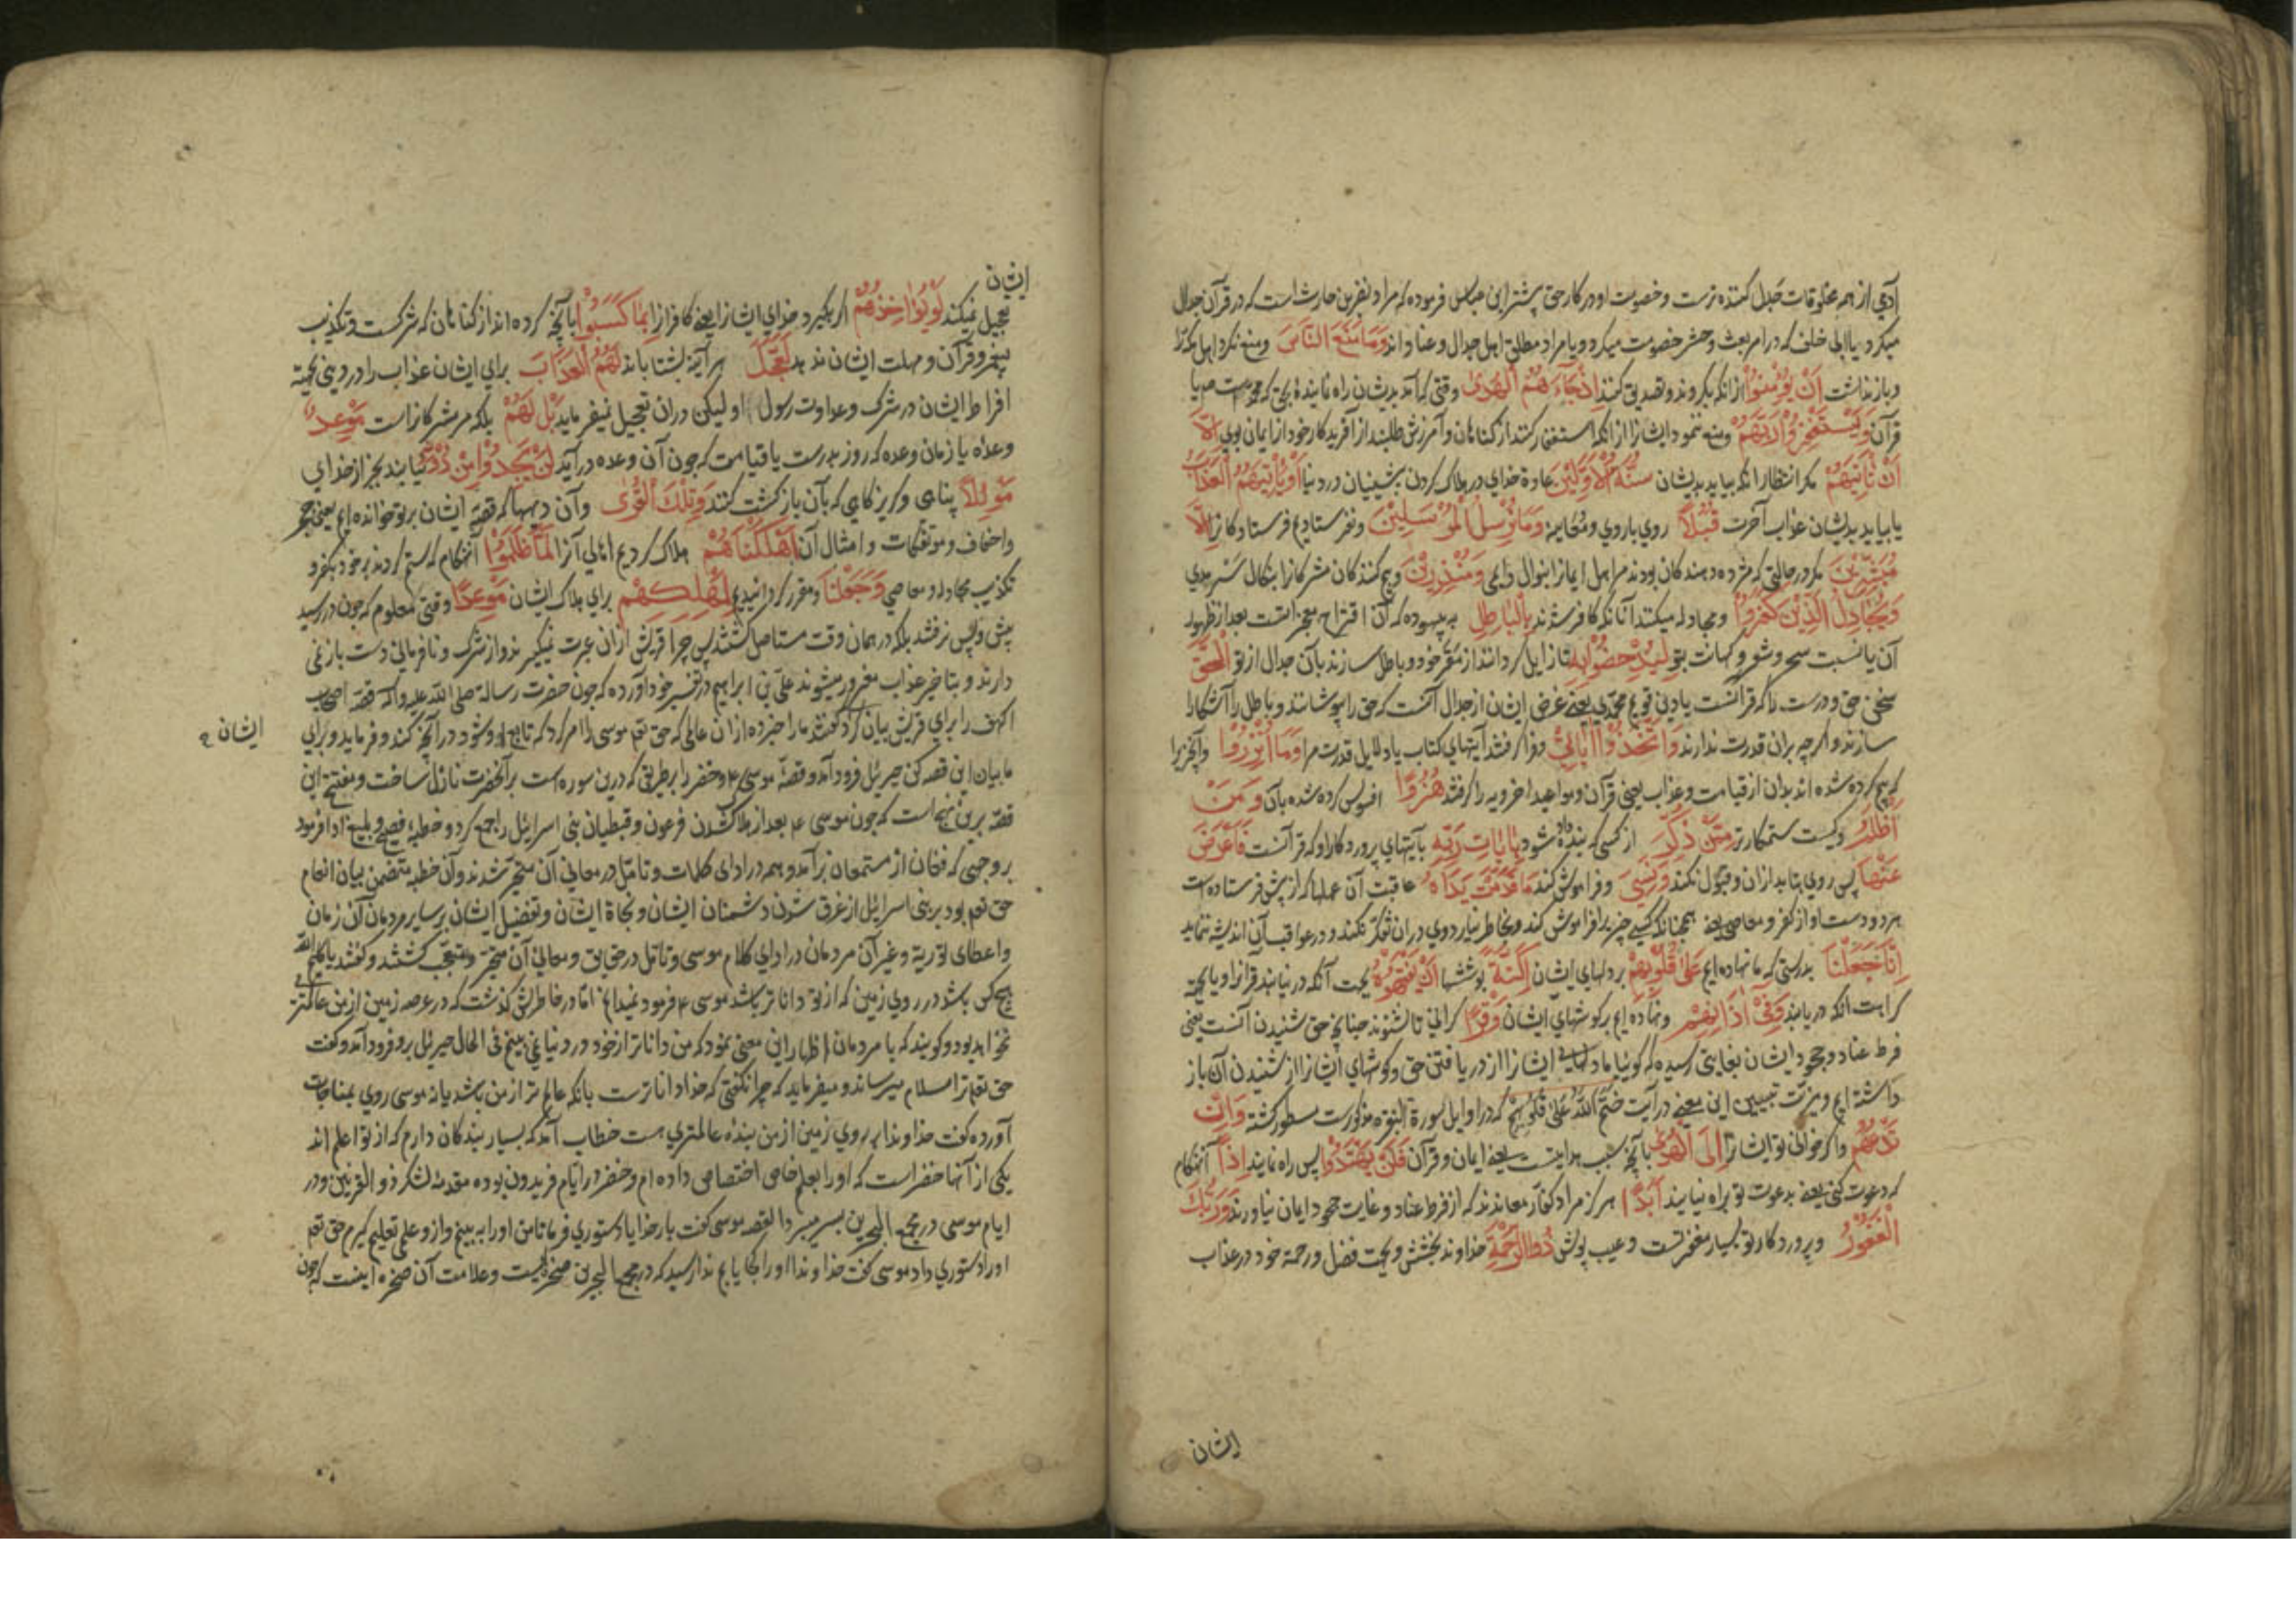 آدمی از همه مخلوقات جدل کننده ترست و خصومت او در کار حق پیشتر ابن عباس فرموده که مراد نضر بن حارث است که در قرآن جدال
میکرد یا ابی خلف که در امر بعث و حشر خصومت میکرد و یا مراد مطلق اهل جدال و عناد اند وَمَا مَنَعَ النَّاسَ و منع نکرد اهل مکه را
و باز نداشت اَنْ یُؤْمِنُوا از آنکه بگروند و تصدیق کنند اِذْ جَاءَهُمُ الْهُدٰی وقتی که آمد بدیشان راه نماینده بحق که محمدست ص یا
قرآن وَیَسْتَغْفِرُوا رَبَّهُمْ و منع ننمود ایشانرا از آنکه استغفار کنند از گناهان و آمرزش طلبند از آفریدگار خود از ایمان بوی اِلَّا
اَنْ تَاْتِیَهُمْ مگر انتظار آنکه بیاید بدیشان سُنَّةُ الْاَوَّلِینَ عادة خدای در هلاک کردن پیشینیان در دنیا اَوْ یَاْتِیَهُمُ الْعَذَابُ
یا بیاید بدیشان عذاب آخرت قُبُلًا روی باروی و معاینه وَمَا نُرْسِلُ الْمُرْسَلِینَ و نفرستادیم فرستادگانرا اِلَّا
مُبَشِّرِینَ مگر در حالتی که مژده دهندگان بودند مر اهل ایمانرا بنوال دایمی وَمُنْذِرِینَ و بیم کنندگان مشرکانرا بنکال سرمدی
وَیُجَادِلُ الَّذِینَ کَفَرُوا و مجادله میکنند آنانکه کافر شدند بِالْبَاطِلِ به بیهوده که آن اقتراح معجزاتست بعد از ظهور
آن یا نسبت سحر و شعر و کهانت بتو لِیُدْحِضُوا بِهِ تا زایل گردانند از مقر خود و باطل سازند بآن جدال از تو الْحَقَّ
سخن حق و درست را که قرآنست یا دین قویم محمدی یعنی غرض ایشان از جدال آنست که حق را بپوشانند و باطل را آشکارا
سازند و اگرچه بران قدرت ندارند وَاتَّخَذُوا اٰیَاتِی و فرا گرفتند آیتهای کتاب یا دلایل قدرت مرا وَمَا اُنْذِرُوا و آنچیزرا
که بیم کرده شده اند بدان از قیامت و عذاب یعنی قرآن و مواعید اخرویه را گرفتند هُزُوًا افسوس کرده شده بآن وَمَنْ
اَظْلَمُ و کیست ستمکارتر مِمَّنْ ذُکِّرَ از کسی که پند داده شود بِاٰیَاتِ رَبِّهِ بآیتهای پروردگار او که قرآنست فَاَعْرَضَ
عَنْهَا پس روی بتابد ازان و قبول نکند وَنَسِیَ و فراموش کند مَا قَدَّمَتْ یَدَاهُ عاقبت آن عملها که از پیش فرستاده است
هر دو دست او از کفر و معاصی یعنی همچنانکه کسی چیزیرا فراموش کند و بخاطر نیارد وی دران تفکر نکند و در عواقب آن اندیشه ننماید
اِنَّا جَعَلْنَا بدرستی که ما نهاده ایم عَلٰی قُلُوبِهِمْ بر دلهای ایشان اَکِنَّةً پوششها اَنْ یَفْقَهُوهُ بجهت آنکه در نیابند قرآنرا و یا بجهة
کراهت آنکه دریابند وَفِی اٰذَانِهِمْ و نهاده ایم بر گوشهای ایشان وَقْرًا گرانی تا نشنوند چنانچه حق شنیدن آنست یعنی
فرط عناد و جحود ایشان بغایتی رسیده که گوئیا ما دلهای ایشانرا از دریافتن حق و گوشهای ایشانرا از شنیدن آن باز
داشته ایم و مزیت تبیین این معنی در آیت خَتَمَ اللّٰهُ عَلٰی قُلُوبِهِمْ که در اوایل سورة البقره مذکورست مسطور گشته وَاِنْ
تَدْعُهُمْ و اگر خوانی تو ایشانرا اِلَی الْهُدٰی بآنچه سبب هدایتست یعنی ایمان و قرآن فَلَنْ یَهْتَدُوا پس راه نیابند اِذًا آنهنگام
که دعوت کنی یعنی بدعوت تو براه نیایند اَبَدًا هرگز مراد کفار معاندند که از فرط عناد و غایت جحود ایمان نیاورند وَرَبُّکَ
الْغَفُورُ و پروردگار تو بسیار مغفرتست و عیب پوش ذُو الرَّحْمَةِ خداوند بخشش و بجهت فضل و رحمة خود در عذاب
ایشان
ایشان
تعجیل نمیکند لَوْ یُؤَاخِذُهُمْ اگر بگیرد خدای ایشانرا یعنی کافرانرا بِمَا کَسَبُوا بآنچه کرده اند از گناهان که شرکست و تکذیب
پیغمبر و قرآن و مهلت ایشان ندهد لَعَجَّلَ هر آینه بشتاباند لَهُمُ الْعَذَابَ برای ایشان عذاب را در دنیا بجهة
افراط ایشان در شرک و عداوت رسول او لیکن دران تعجیل نمیفرماید بَلْ لَهُمْ بلکه مر مشرکانراست مَوْعِدٌ
وعده یا زمان وعده که روز بدرست یا قیامت که چون آن وعده درآید لَنْ یَجِدُوا مِنْ دُونِهِ نیابند بجز از خدای
مَوْئِلًا پناهی و گریزگاهی که بآن بازگشت کنند وَتِلْکَ الْقُرٰی و آن دیهها که قصه ایشان بر تو خوانده ایم یعنی حجر
و احقاف و موتفکات و امثال آن اَهْلَکْنَاهُمْ هلاک کردیم اهالی آنرا لَمَّا ظَلَمُوا آنهنگام که ستم کردند بر خود بکفر و
تکذیب مجادله و معاصی وَجَعَلْنَا و مقرر گردانیدیم لِمَهْلِکِهِمْ برای هلاک ایشان مَوْعِدًا وقتی معلوم که چون در رسید
پیش و پس نرفتند بلکه در همان وقت مستاصل گشتند پس چرا قریش ازان عبرت نمیگیرند و از شرک و نافرمانی دست باز نمی
دارند و بتاخیر عذاب مغرور میشوند علی بن ابراهیم در تفسیر خود آورده که چون حضرت رسالة صلی الله علیه و آله قصه اصحاب
الکهف را برای قریش بیان کرد گفتند ما را خبر ده ازان عالمی که حق تعم موسی را امر کرد که تابع او شود در آنچه کند و فرماید و برای
ایشان
ما بیان این قصه کن جبرئیل فرود آمد و قصهٔ موسی ع و خضر را بطریقی که درین سوره است برآنحضرت نازل ساخت و مفتتح این
قصه برین نهج است که چون موسی ع بعد از هلاک شدن فرعون و قبطیان بنی اسرائیل را جمع کرد و خطبهٔ فصیح و بلیغ ادا فرمود
بر وجهی که فغان از مستمعان برآمد و همه در ادای کلمات و تامل در معانی آن متحیر شدند و آن خطبه متضمن بیان انعام
حق تعم بود بر بنی اسرائیل از غرق شدن دشمنان ایشان و نجاة ایشان و تفضیل ایشان بر سایر مردمان آن زمان
و اعطای توریة و غیر آن مردمان در ادای کلام موسی و تامل در حقایق و معانی آن متحیر و متعجب گشتند و گفتند یا کلیم الله
هیچ کس باشد در روی زمین که از تو داناتر باشد موسی ع فرمود نمیدانم اما در خاطرش گذشت که در عرصه زمین از من عالمتری
نخواهد بود و گویند که با مردمان اظهار این معنی نمود که من داناتر از خود در دنیا نمی بینم فی الحال جبرئیل برو فرود آمد و گفت
حق تعم ترا سلام میرساند و میفرماید که چرا نگفتی که خدا داناترست بآنکه عالم تر از من باشد یا نه موسی روی بمناجات
آورده گفت خداوندا بر روی زمین از من بنده عالمتری هست خطاب آمد که بسیار بندگان دارم که از تو اعلم اند
یکی از آنها خضر است که او را بعلم خاص اختصاص داده ام و خضر در ایام فریدون بوده مقدمهٔ لشکر ذو القرنین و در
ایام موسی در مجمع البحرین بسر میبرد القصه موسی گفت بار خدایا دستوری فرما تا من او را ببینم و ازو علمی تعلیم گیرم حق تعم
او را دستوری داد موسی گفت خداوندا او را کجا یابم ندا رسید که در مجمع البحرین صخره ایست و علامت آن صخره اینست که چون